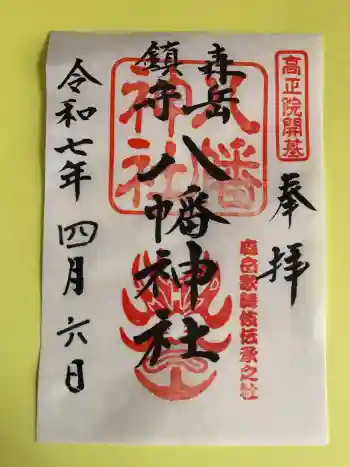 高正院開基
奉拝
森岳歌舞伎伝承之社
森岳
鎮守
八幡神社
八幡神社
令和七年四月六日